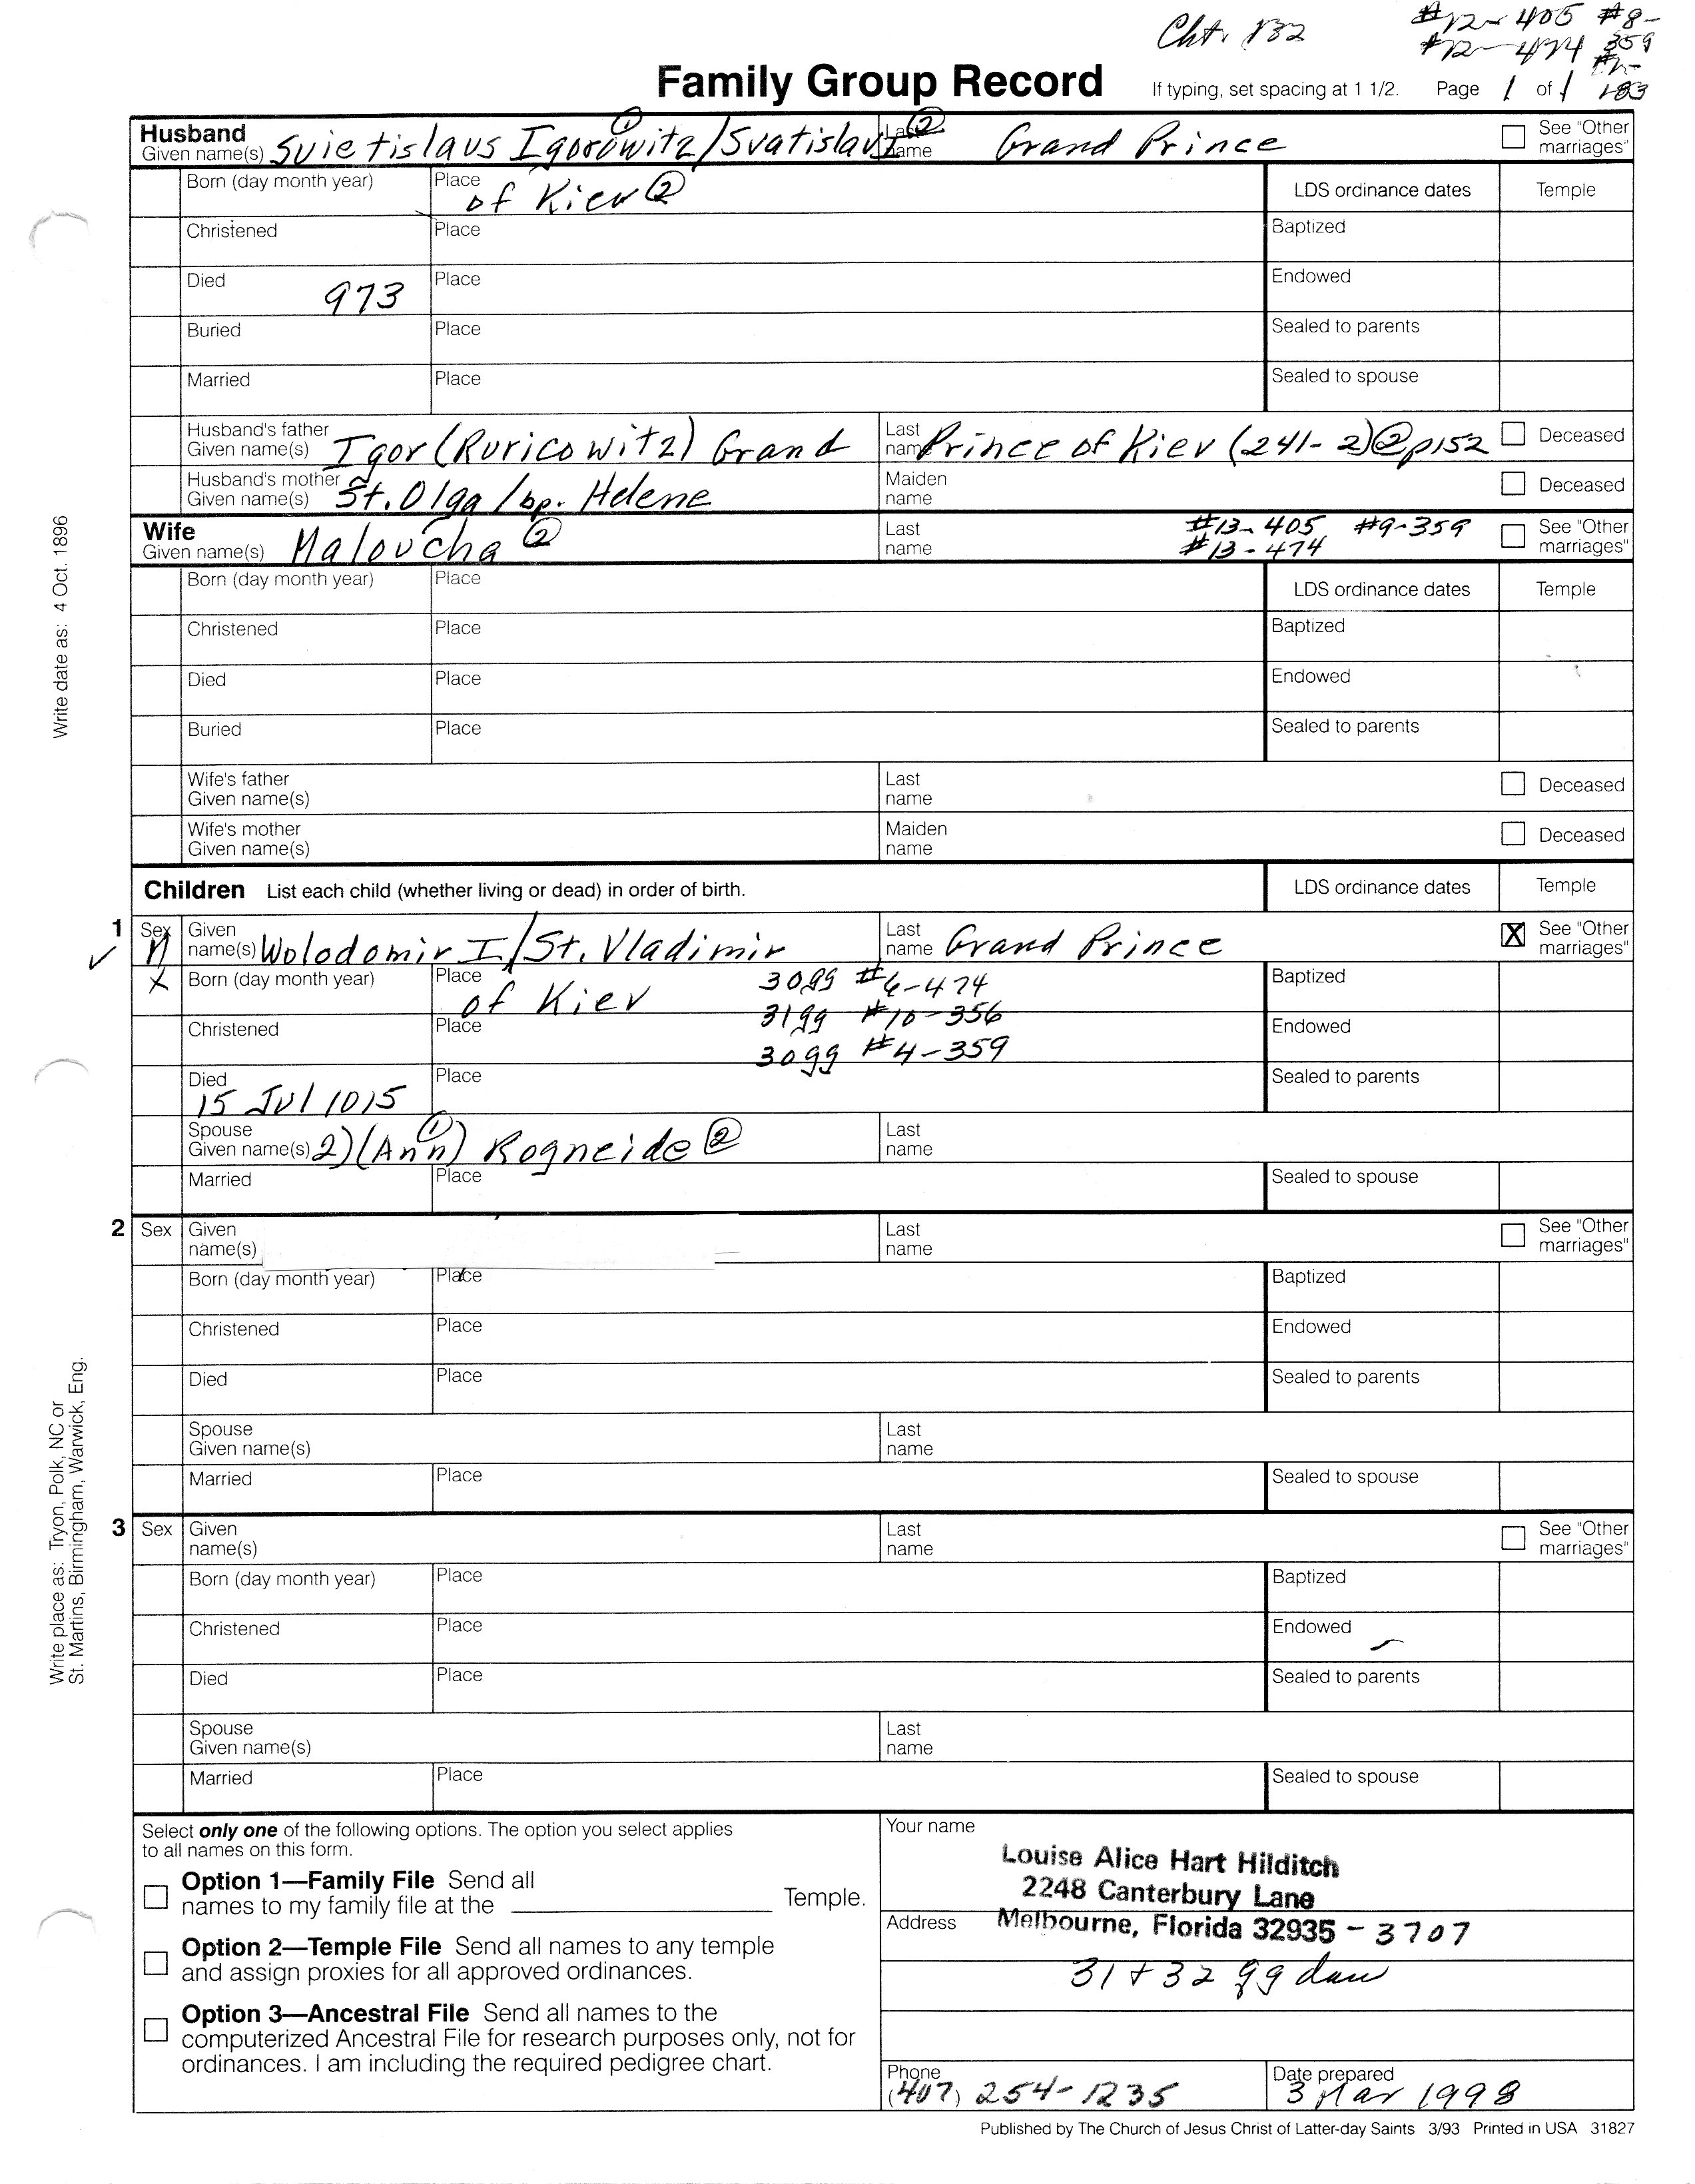 Cht. 132 #12-405 #8-359
#12-474 #12-183
Family Group Record If typing, set spacing at 1 1/2. Page 1 of 1
Husband
Given name(s) Svietislaus Igorowitz ① / Svatislav I ② Last name Grand Prince See "Other marriages"
Born (day month year) Place of Kiev ② LDS ordinance dates Temple
Christened Place Baptized
Died 973 Place Endowed
Buried Place Sealed to parents
Married Place Sealed to spouse
Husband's father
Given name(s) Igor (Ruricowitz) Grand Last name Prince of Kiev (241-2) ② p152 Deceased
Husband's mother
Given name(s) St. Olga / bp. Helene Maiden name Deceased
Wife
Given name(s) Maloucha ② Last name #13-405 #9-359 See "Other marriages"
#13-474
Born (day month year) Place LDS ordinance dates Temple
Christened Place Baptized
Died Place Endowed
Buried Place Sealed to parents
Wife's father
Given name(s) Last name Deceased
Wife's mother
Given name(s) Maiden name Deceased
Children List each child (whether living or dead) in order of birth. LDS ordinance dates Temple
1 Sex M Given name(s) Wolodomir I / St. Vladimir Last name Grand Prince X See "Other marriages"
X Born (day month year) Place of Kiev 30gg #6-474 Baptized
Christened Place 31gg #10-356 Endowed
30gg #4-359
Died 15 Jul 1015 Place Sealed to parents
Spouse
Given name(s) 2) (Ann) ① Rogneide ② Last name
Married Place Sealed to spouse
2 Sex Given name(s) Last name See "Other marriages"
Born (day month year) Place Baptized
Christened Place Endowed
Died Place Sealed to parents
Spouse
Given name(s) Last name
Married Place Sealed to spouse
3 Sex Given name(s) Last name See "Other marriages"
Born (day month year) Place Baptized
Christened Place Endowed
Died Place Sealed to parents
Spouse
Given name(s) Last name
Married Place Sealed to spouse
Select only one of the following options. The option you select applies
to all names on this form.
Option 1—Family File Send all
names to my family file at the Temple.
Option 2—Temple File Send all names to any temple
and assign proxies for all approved ordinances.
Option 3—Ancestral File Send all names to the
computerized Ancestral File for research purposes only, not for
ordinances. I am including the required pedigree chart.
Your name
Louise Alice Hart Hilditch
2248 Canterbury Lane
Address Melbourne, Florida 32935 - 3707
31 + 32 gg dau
Phone (407) 254-1235 Date prepared 3 Mar 1998
Published by The Church of Jesus Christ of Latter-day Saints 3/93 Printed in USA 31827
Write date as: 4 Oct. 1896
Write place as: Tryon, Polk, NC or
St. Martins, Birmingham, Warwick, Eng.